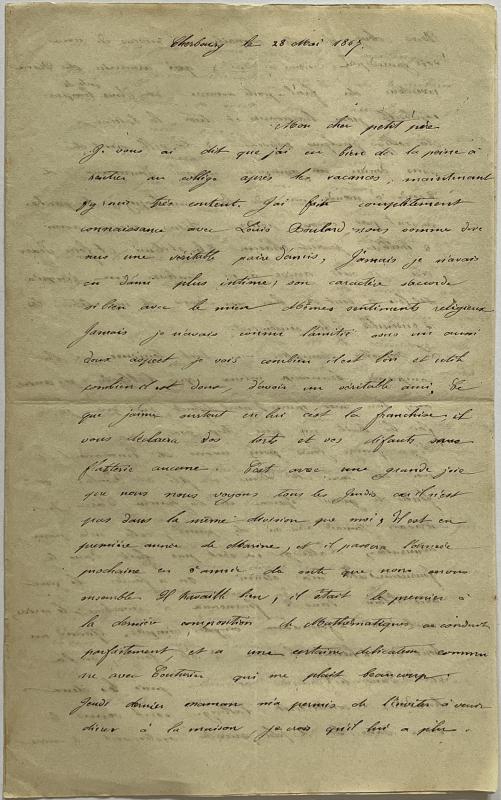 Cherbourg le 28 Mai 1867
Mon cher petit père
Je vous ai dit que j'ai eu bien de la peine à
rentrer au collège après les vacances, maintenant
j'y suis très content. J'ai fait complètement
connaissance avec Louis Boulard nous somme deve
nus une véritable paire d'amis, Jamais je n'avais
eu d'ami plus intime; son caractère s'accorde
si bien avec le mien Mêmes sentiments religieux
Jamais je n'avais connu l'amitié sous un aussi
doux aspect, je vois combien il est bon et utile
combien il est doux, d'avoir un véritable ami, Ce
que j'aime surtout en lui c'est la franchise, il
vous déclarera vos torts et vos défauts sans
flatterie aucune. C'est avec une grande joie
que nous nous voyons tous les Jeudis car il n'est
pas dans la même division que moi, Il est en
première année de Marine, et il passera l'année
prochaine en 2e année de sorte que nous serons
ensemble Il travaille bien, il était le premier à
la dernière composition de Mathématiques, se conduit
parfaitement, et a une certaine délicatesse commu
ne avec qui me plait beaucoup.
Jeudi dernier maman m'a permis de l'inviter à venir
dîner à la maison je crois qu'il lui a plu.